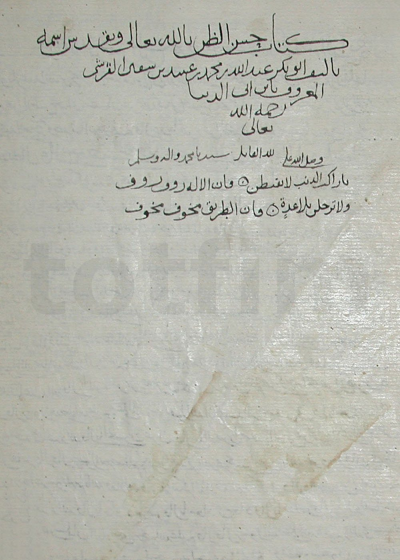 كتاب حسن الظن بالله تعالى وتقدس اسمه
تاليف ابو بكر عبد الله بن محمد بن عبيد بن سفين القرشى
المعروف بابن ابى الدنيا
رحمه الله
تعالى
وصلى الله على سيدنا محمد واله وسلم
لله القايل
يا راكب الذنب لا تقنطن فان الاله رووف رووف
ولا ترحلن بلا عدة فان الطريق مخوف مخوف
totfim